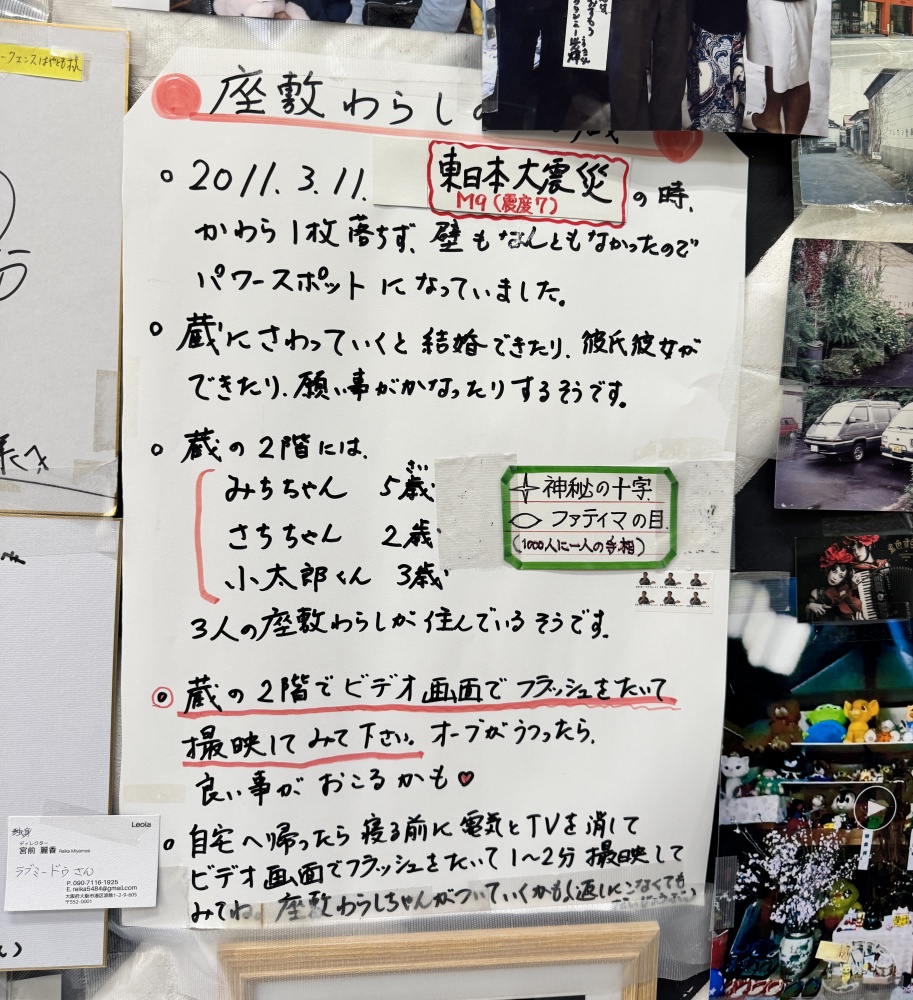 座敷わらしの 蔵
○ 2011.3.11. 東日本大震災 の時、
M9(震度7)
かわら1枚落ちず、壁もなんともなかったので
パワースポットになっていました。
○ 蔵にさわっていくと結婚できたり、彼氏彼女が
できたり、願い事がかなったりするそうです。
○ 蔵の2階には、
みちちゃん 5歳
さい
さちちゃん 2歳
小太郎くん 3歳
神秘の十字
ファティマの目
(1000人に一人の手相)
3人の座敷わらしが住んでいるそうです。
◎ 蔵の2階でビデオ画面でフラッシュをたいて
撮映してみて下さい。オーブがうつったら、
良い事がおこるかも♥
○ 自宅へ帰ったら寝る前に電気とTVを消して
ビデオ画面でフラッシュをたいて1〜2分撮映して
みてね。座敷わらしちゃんがついていくかも(返しにこなくても
Leola
独身
ディレクター
宮前 麗香 Reika Miyamae
ラブミードゥさん
P.090-7116-1925
E.reika5484@gmail.com
大阪府大阪市港区波除1-2-9-605
〒552-0001